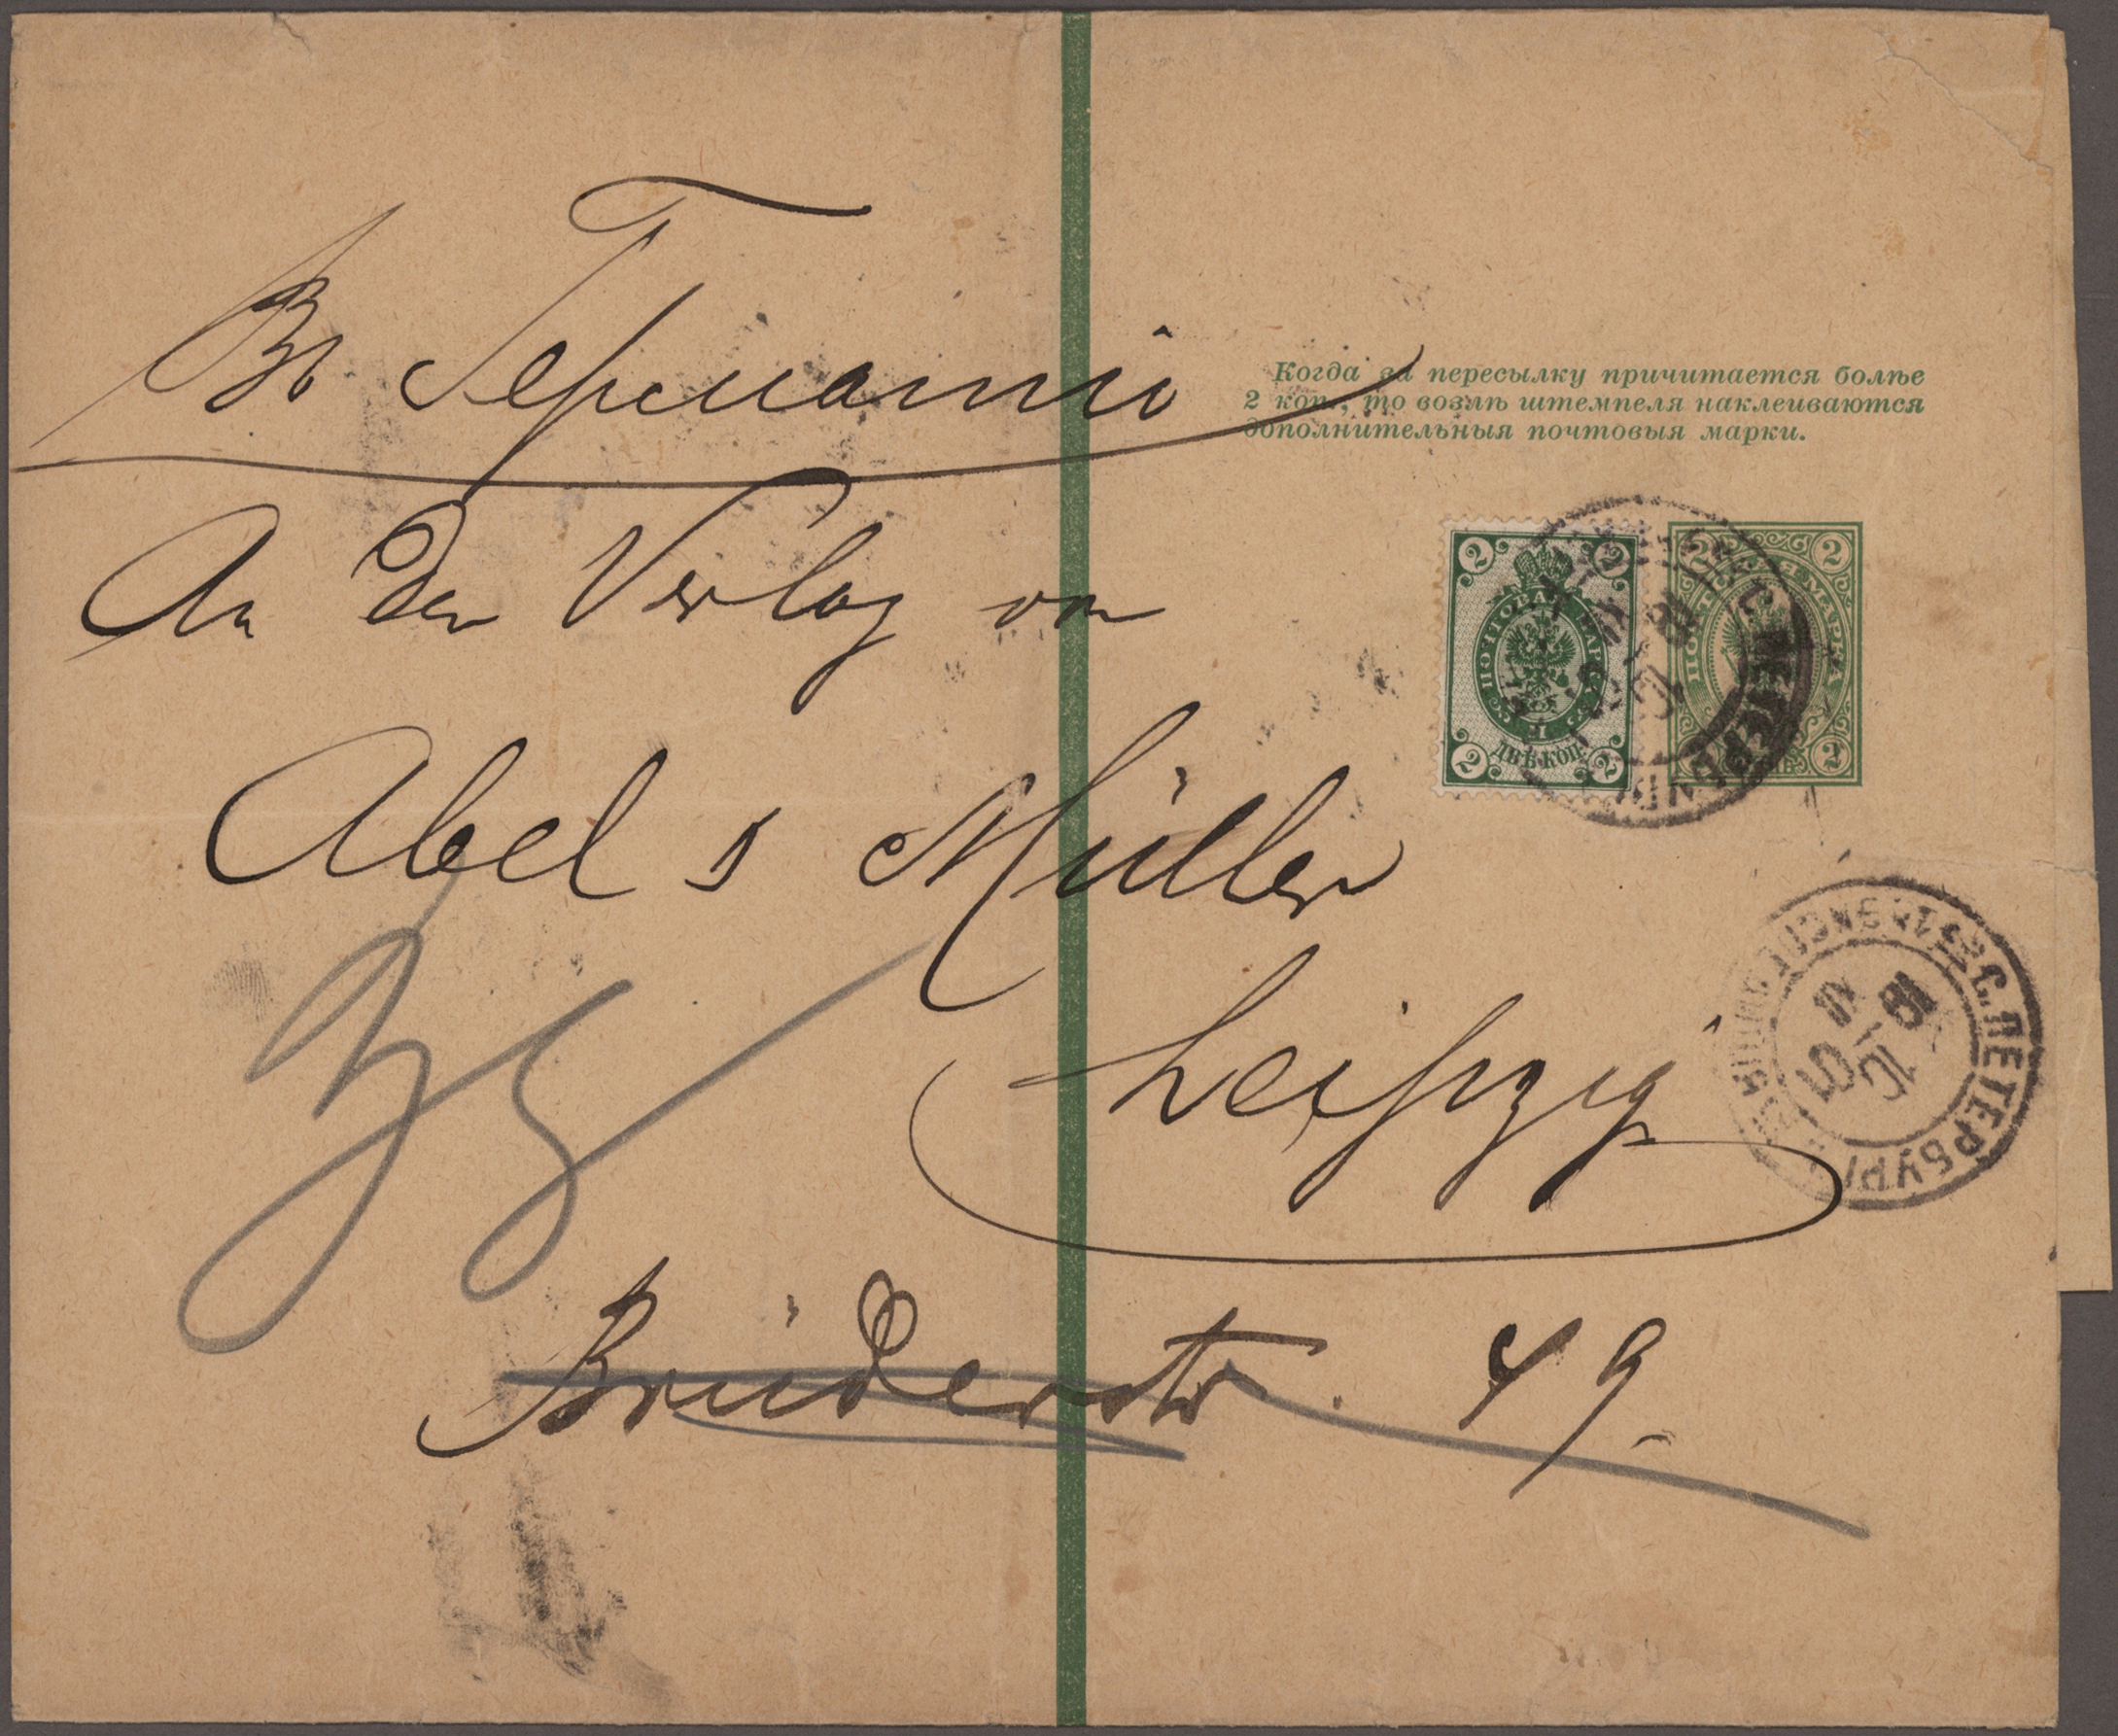 Въ Германію
Когда за пересылку причитается болѣе
2 коп., то возлѣ штемпеля наклеиваются
дополнительныя почтовыя марки.
An den Verlag von
Abel & Müller
Leipzig
Brüderstr. 49
2 2
ПОЧТОВАЯ МАРКА
ДВѢ КОП.
2 2
2 2
ПОЧТОВАЯ МАРКА
2
С. ПЕТЕРБ
С. ПЕТЕРБУРГ